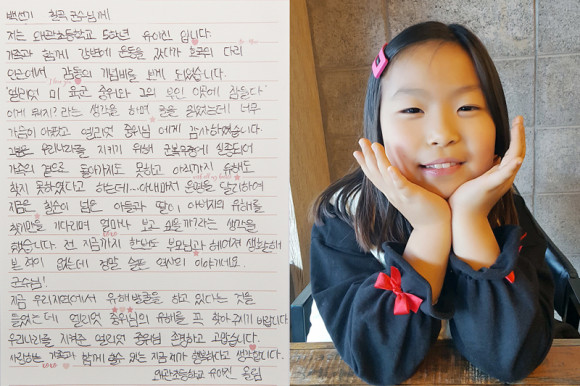 백선기 칠곡 군수님께
저는 왜관초등학교 5학년 유아진 입니다.
가족과 함께 강변에 운동을 갔다가 호국의 다리
인근에서 기념비를 보게 되었습니다.
'엘리엇 미 육군 중위와 그의 부인 이곳에 잠들다'
이게 뭐지? 라는 생각을 하며 글을 읽었는데 너무
가슴이 아팠고 엘리엇 중위님 에게 감사하였습니다.
우리나라를 지키기 위해 실종되어
가족의 곁으로 돌아가지도 못하고 아직까지 유해도
찾지 못하였다고 하는데... 아내마저 운명을 달리하여
지금은 환갑이 넘은 아들과 딸이 아버지의 유해를
찾기만을 기다리며 얼마나 보고 싶을까?라는 생각을
했습니다. 전 지금까지 한번도 부모님과 헤어져 생활해
본 적이 없는데 정말 슬픈 역사의 이야기네요.
군수님!
지금 우리지역에서 유해발굴을 하고 있다는 것을
들었는데 엘리엇 중위님의 유해를 꼭 찾아주기 바랍니다.
우리나라를 지켜준 엘리엇 중위님 존경하고 고맙습니다.
사랑하는 가족과 함께 할수 있는 지금 제가 행복하다고 생각합니다.
왜관초등학교 유아진 올림